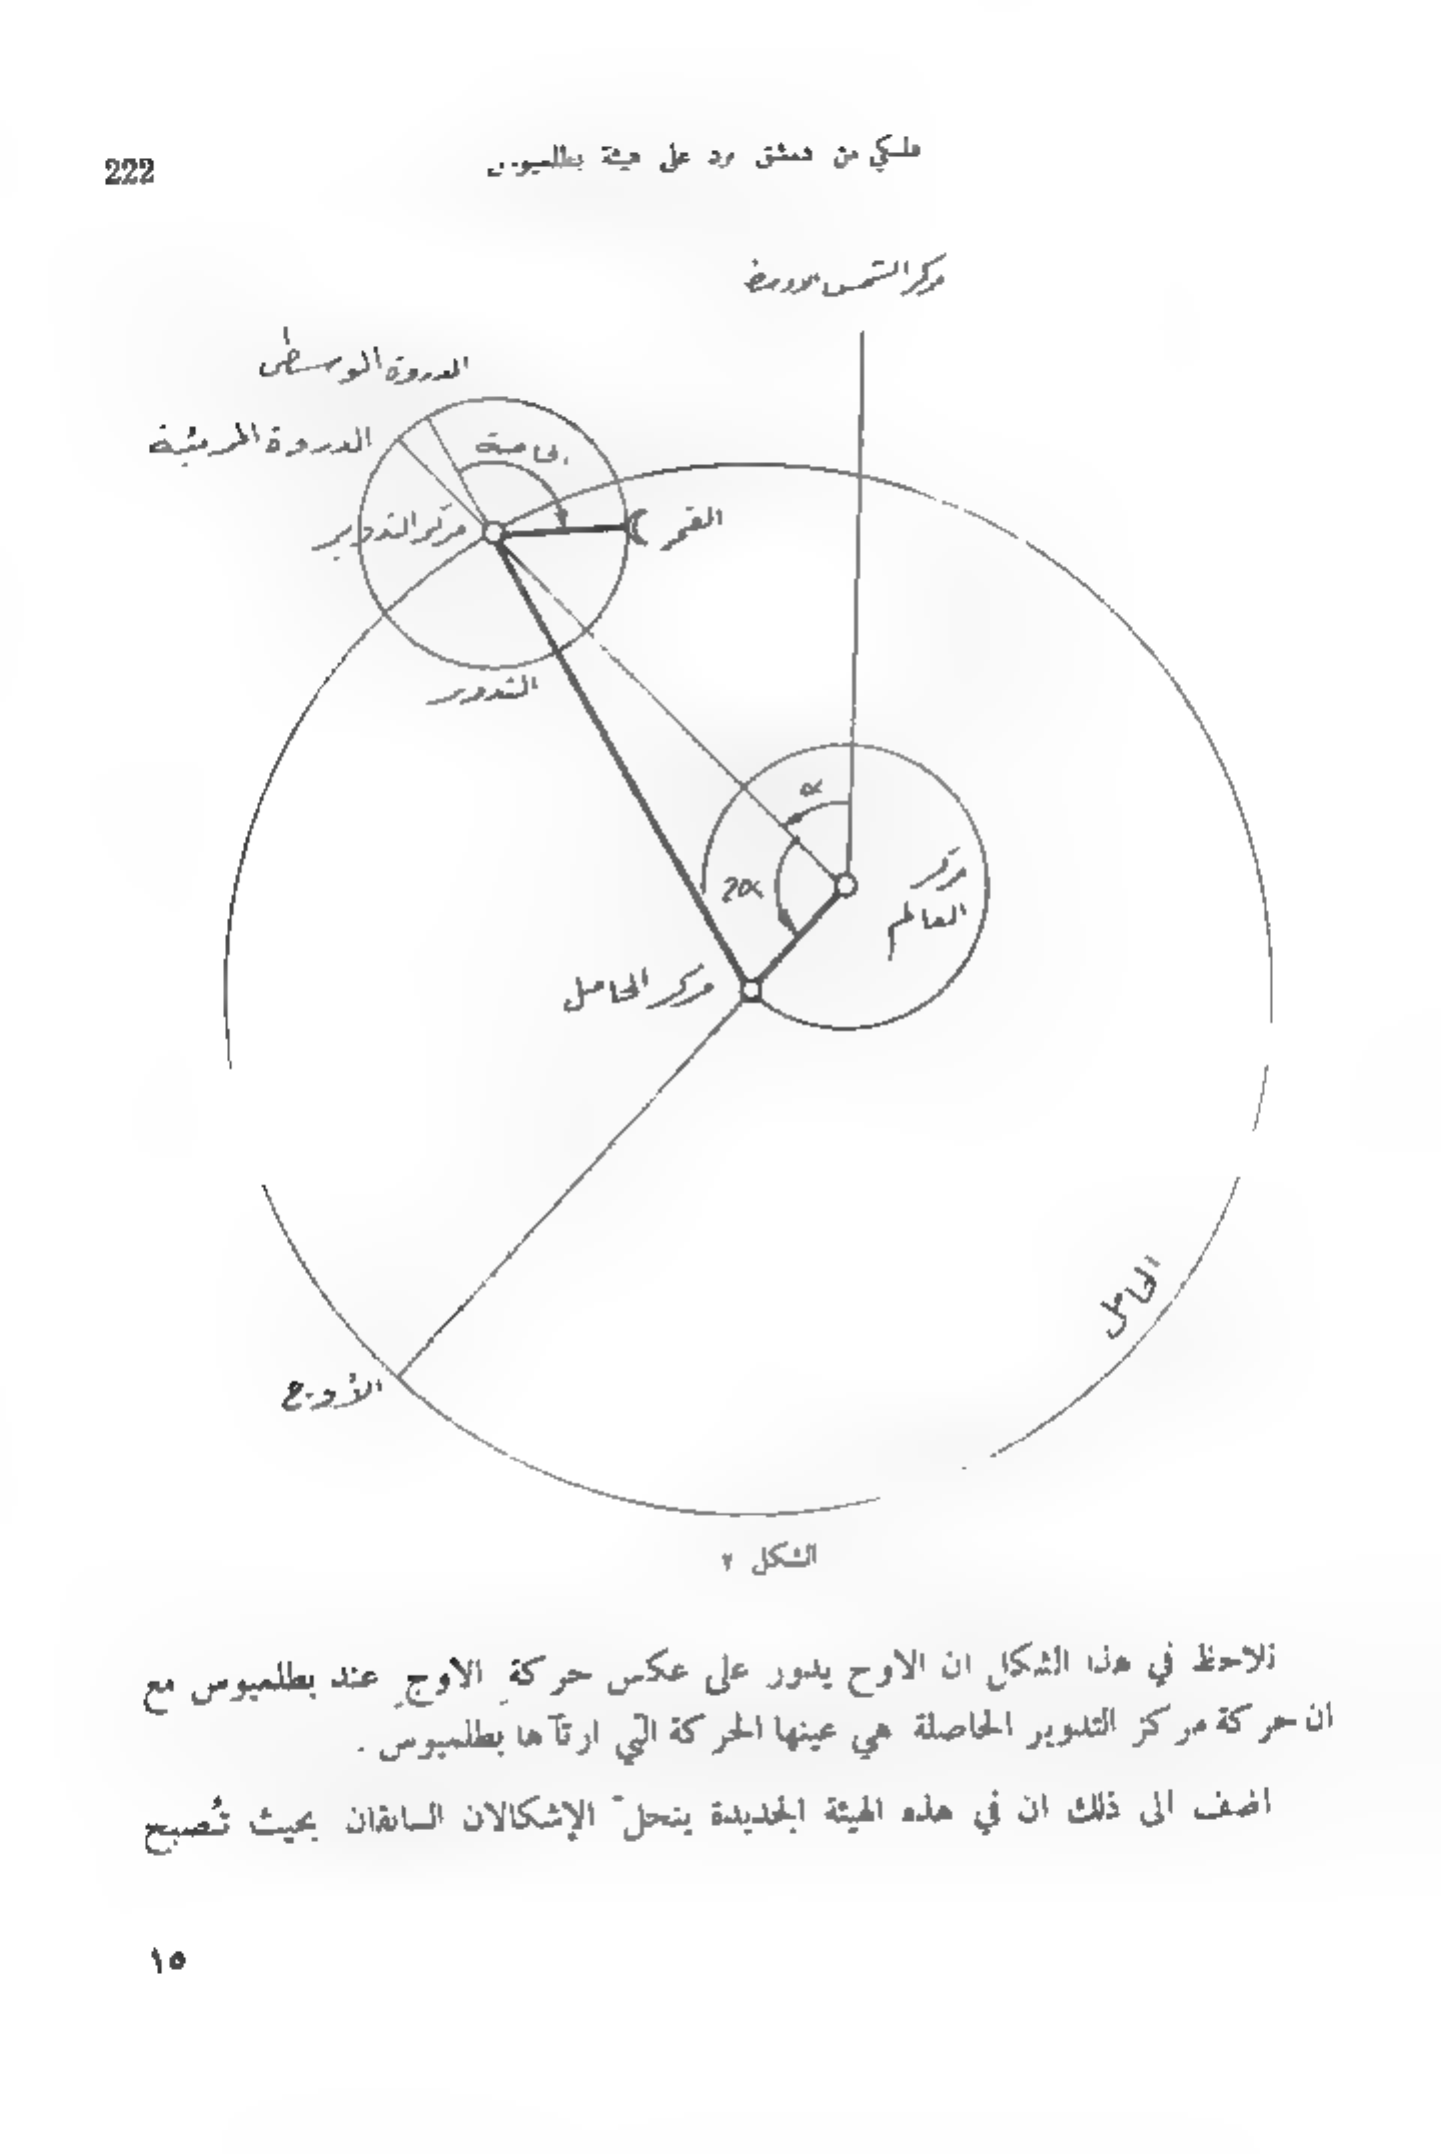 222
فلكي من دمشق يرد على هيئة بطلميوس
مركز الشمس الاوسط
الدروة الوسطى
الدروة المرئية
الخاصة
مركز التدوير
القمر
التدوير
α
2α
مركز
العالم
مركز الحامل
الحامل
الأوج
الشكل ٢
نلاحظ في هذا الشكل ان الاوج يدور على عكس حركةِ الاوجِ عند بطلميوس مع
ان حركة مركز التدوير الحاصلة هي عينها الحركة التي ارتآها بطلميوس .
اضف الى ذلك ان في هذه الهيئة الجديدة ينحلّ الإشكالان السابقان بحيث تُصبح
١٥